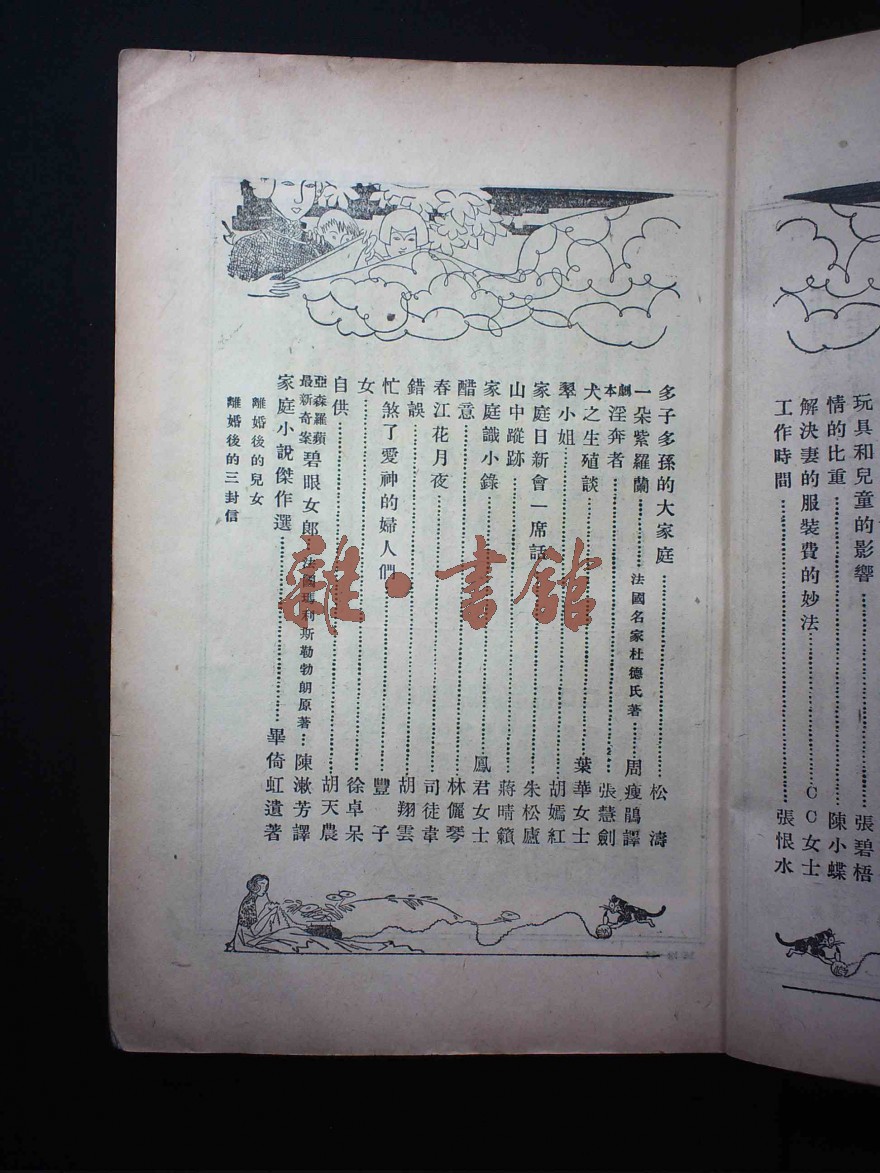 玩具和兒童的影響……張碧梧
情的比重……陳小蝶
解決妻的服裝費的妙法……CC女士
工作時間……張恨水
多子多孫的大家庭……松濤
一朵紫羅蘭……法國名家杜德氏著……周瘦鵑譯
劇本淫奔者……張慧劍
犬之生殖談……葉華女士
翠小姐……胡嫣紅
家庭日新會一席話……朱松廬
山中蹤跡……蔣晴籟
家庭識小錄……鳳君女士
醋意……林儷琴
春江花月夜……司徒韋
錯誤……胡翔雲
忙煞了愛神的婦人們……豐子
女……徐卓呆
自供……胡天農
亞森羅蘋最新奇案碧眼女郎…法國瑪利斯勒勃朗原著…陳漱芳譯
家庭小說傑作選……畢倚虹遺著
離婚後的兒女
離婚後的三封信
雜·書館